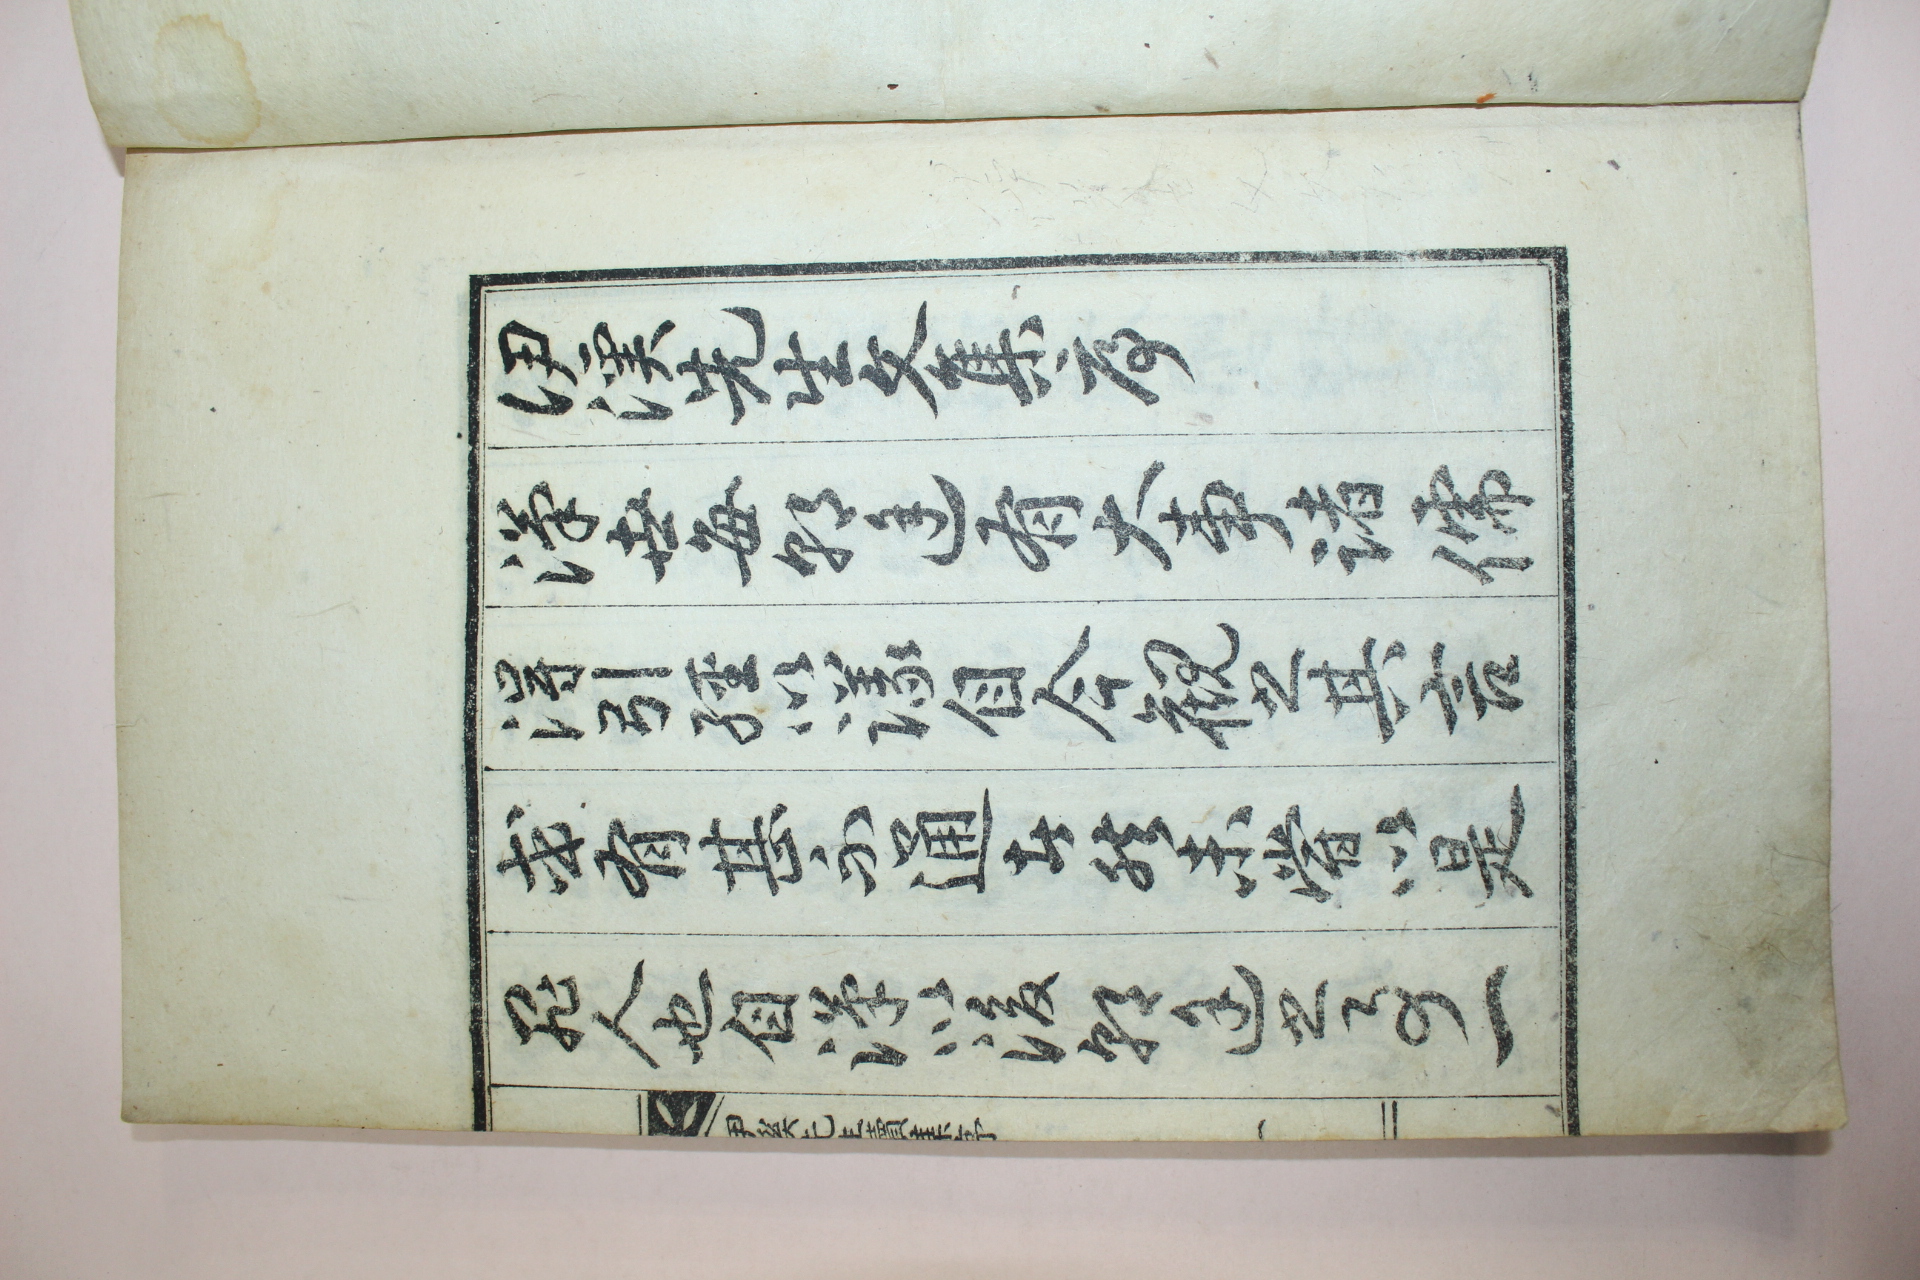 伊溪先生文集序
漢世每朝廷有大事諸儒
得引經以議自今觀之其言
或有甚不通者然未嘗以是
罪人也自漢以後朝廷之事一
伊溪先生續集序
一